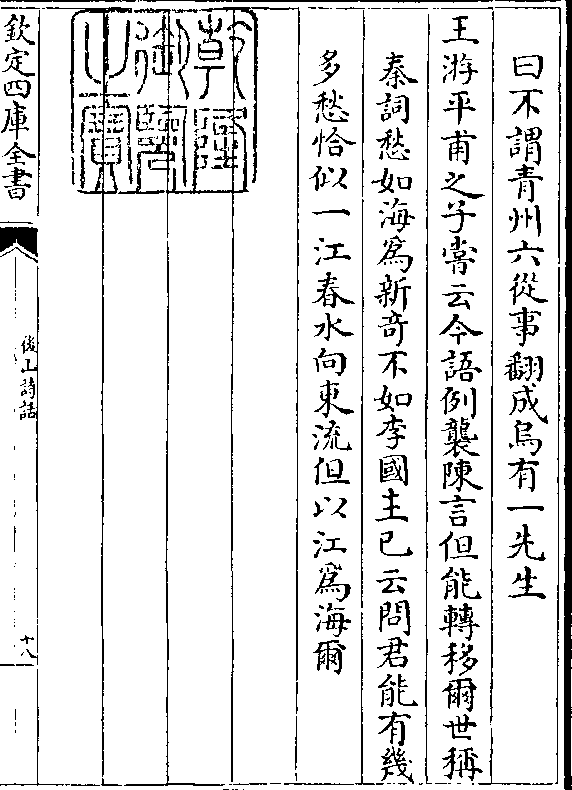 曰不謂青州六從事翻成烏有一先生
王斿平甫之子嘗云今語例襲陳言但能轉移爾世稱
秦詞愁如海為新竒不如李國主已云問君能有幾
多愁恰似一江春水向東流但以江為海爾
乾隆御覽之寶
欽定四庫全書
後山詩話
十八